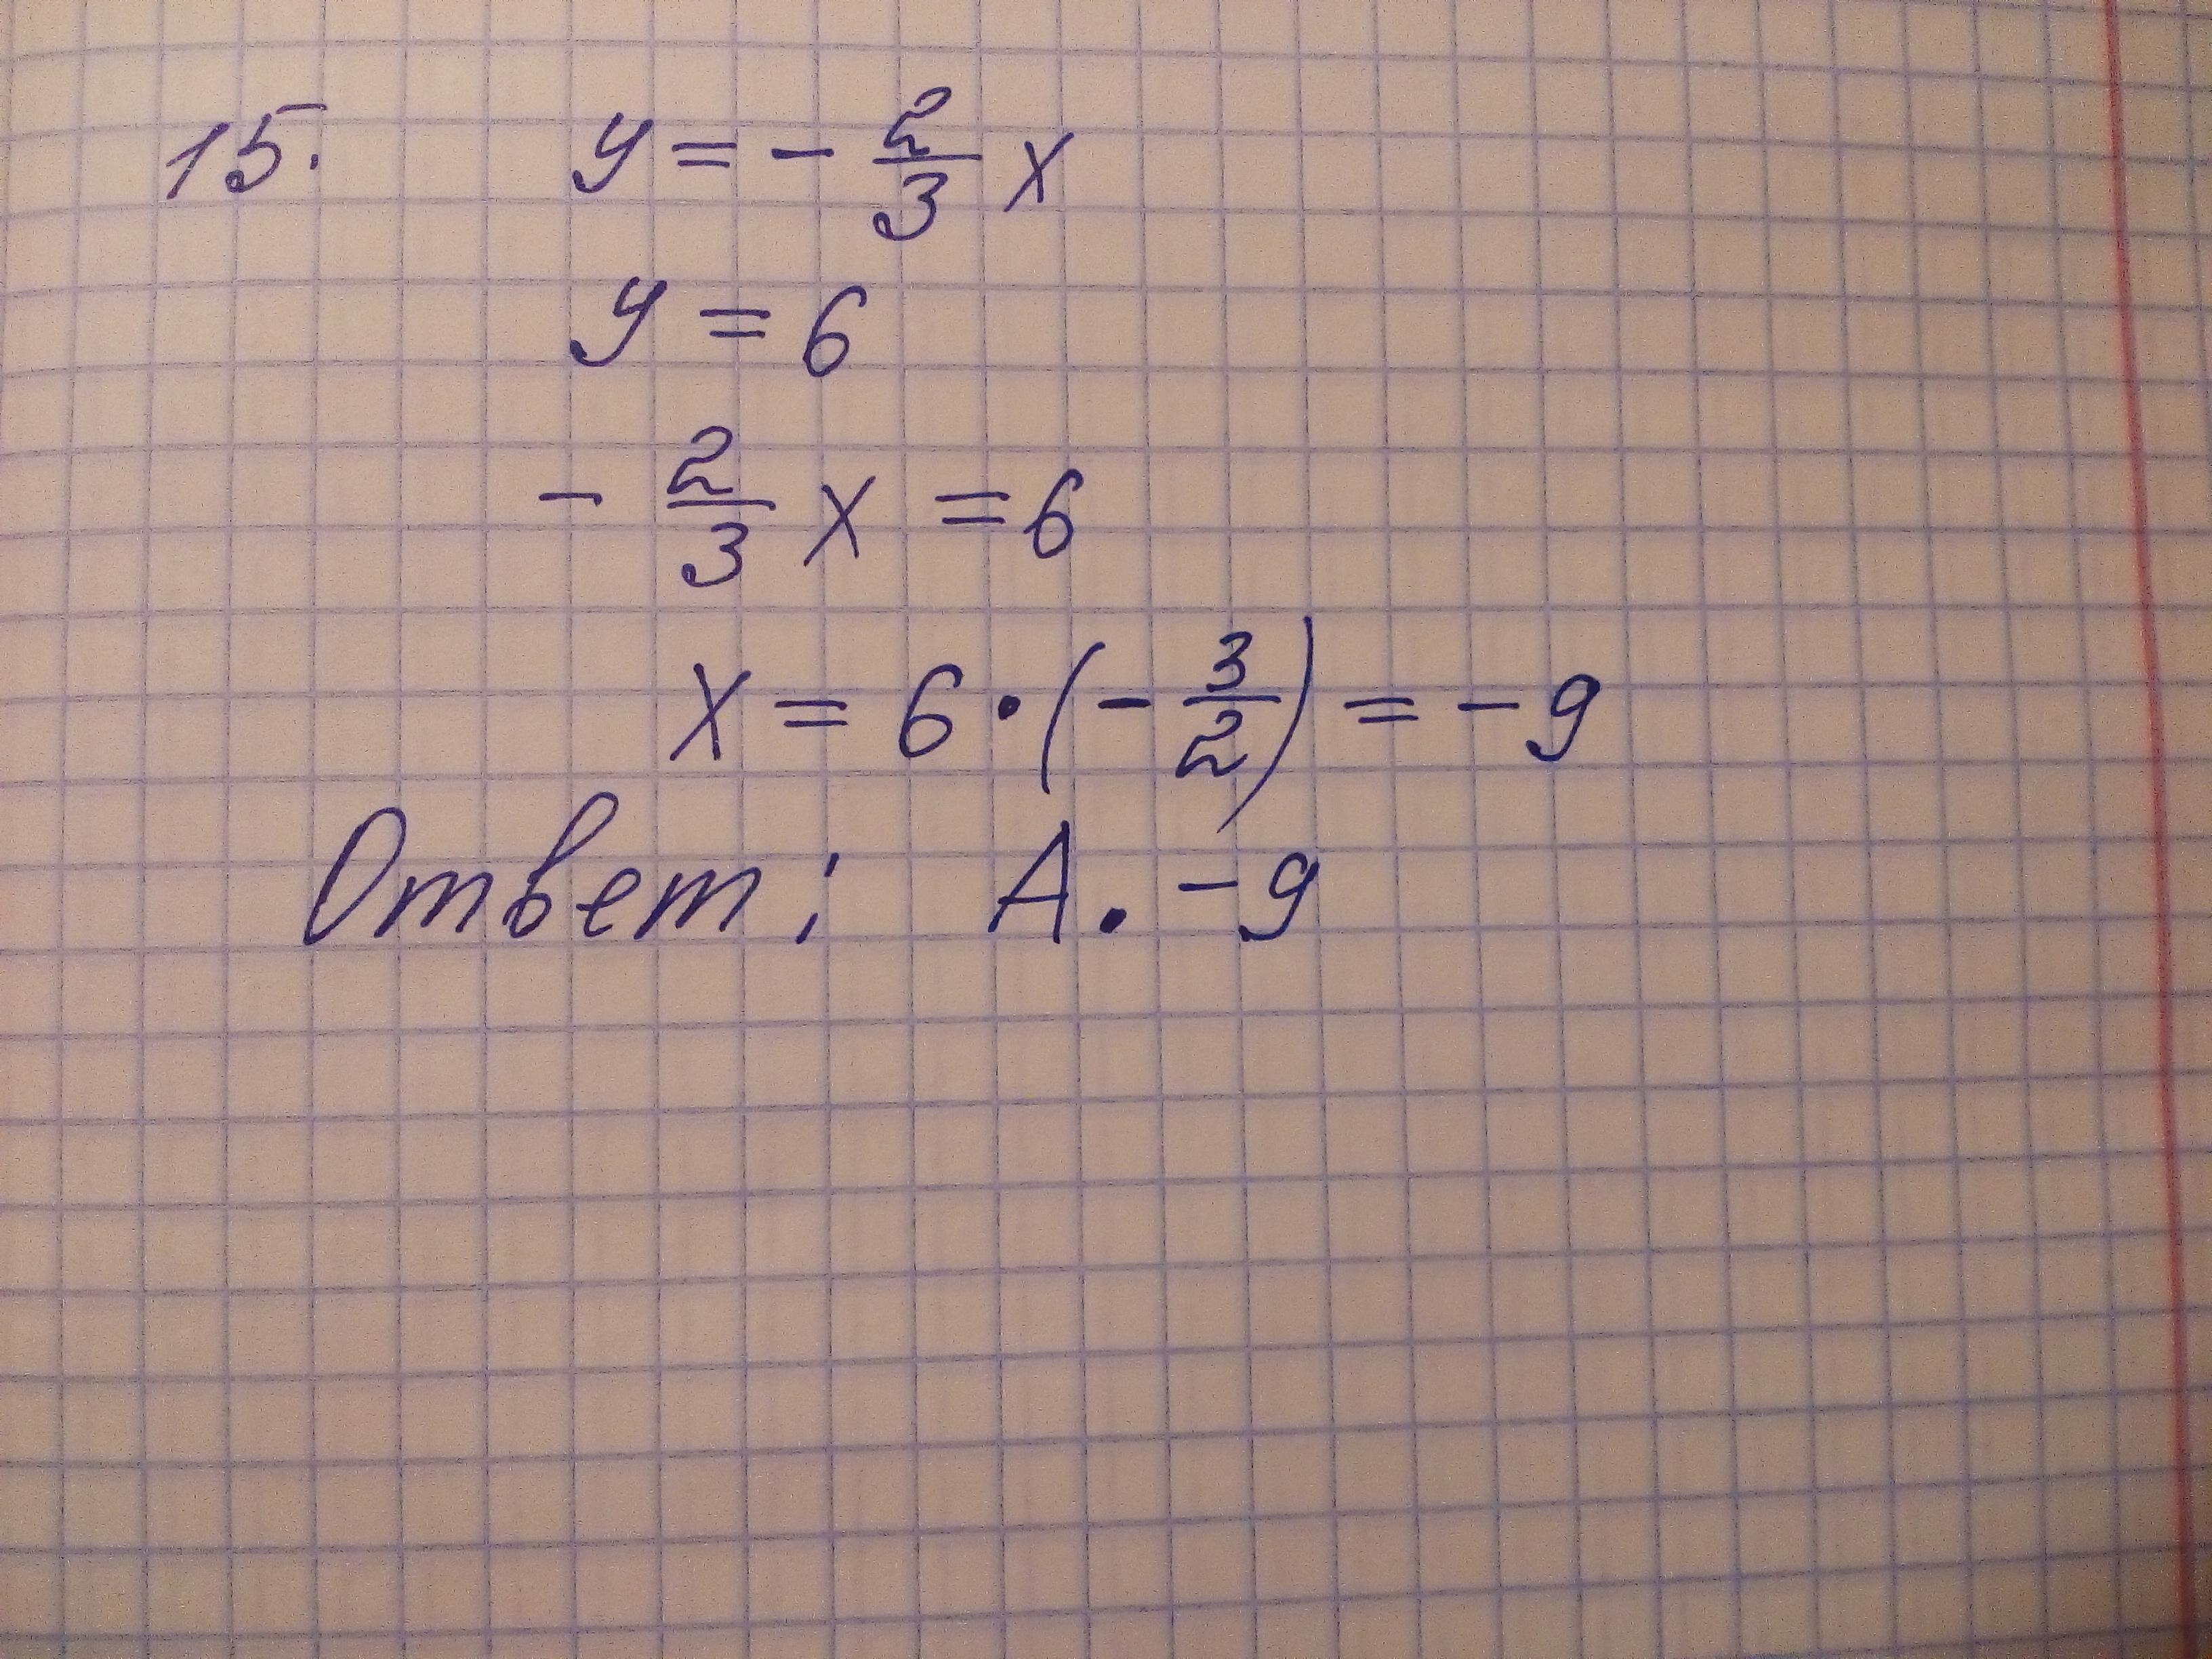 15. y = - 2/3 x
y = 6
- 2/3 x = 6
x = 6 · (- 3/2) = - 9
Ответ: А. - 9